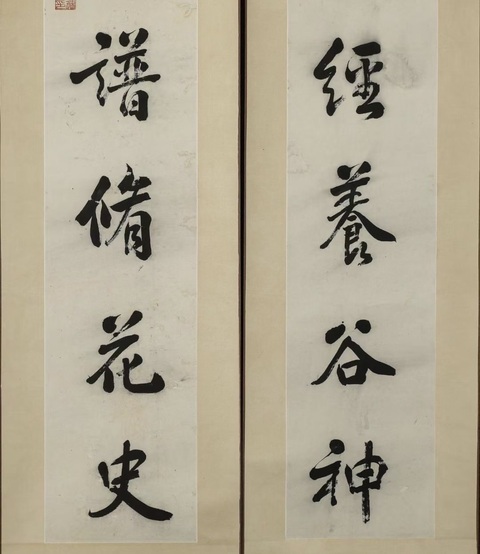 經養谷神
譜脩花史